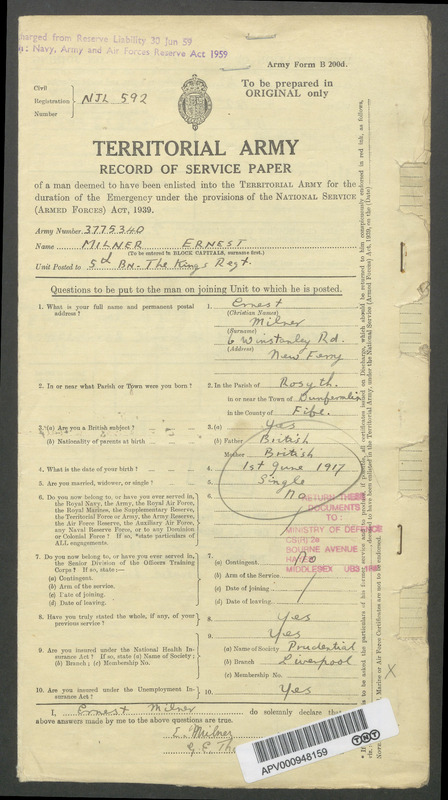 charged from Reserve Liability 30 Jun 59
Navy, Army and Air Forces Reserve Act 1959
Army Form B 200d.
Civil
Registration
Number
NJL 592
To be prepared in
ORIGINAL only
TERRITORIAL ARMY
RECORD OF SERVICE PAPER
of a man deemed to have been enlisted into the TERRITORIAL ARMY for the
duration of the Emergency under the provisions of the NATIONAL SERVICE
(ARMED FORCES) ACT, 1939.
Army Number 3775340
Name MILNER ERNEST
(To be entered in BLOCK CAPITALS, surname first.)
Unit Posted to 5th Bn. The Kings Regt.
Questions to be put to the man on joining Unit to which he is posted.
1. What is your full name and permanent postal
address ?
1. Ernest
(Christian Names)
Milner
(Surname)
6 Winstanley Rd.
(Address)
New Ferry
2. In or near what Parish or Town were you born ?
2. In the Parish of Rosyth.
in or near the Town of Dunfermline
in the County of Fife.
3. (a) Are you a British subject ?
3. (a) Yes
(b) Nationality of parents at birth
(b) Father British
Mother British
4. What is the date of your birth ?
4. 1st June 1917
5. Are you married, widower, or single ?
5. Single
6. Do you now belong to, or have you ever served in,
the Royal Navy, the Army, the Royal Air Force,
the Royal Marines, the Supplementary Reserve,
the Territorial Force or Army, the Army Reserve,
the Air Force Reserve, the Auxiliary Air Force,
any Naval Reserve Force, or to any Dominion
or Colonial Force ? If so, *state particulars of
ALL engagements.
6. No
RETURN THESE
DOCUMENTS
TO :
MINISTRY OF DEFENCE
CS(R) 2e
BOURNE AVENUE
HAYES
MIDDLESEX UB3 1RF
7. Do you now belong to, or have you ever served in,
the Senior Division of the Officers Training
Corps ? If so, state :—
(a) Contingent.
(b) Arm of the Service.
(c) Date of joining.
(d) Date of leaving.
7.
(a) Contingent. No
(b) Arm of the Service
(c) Date of joining
(d) Date of leaving
8. Have you truly stated the whole, if any, of your
previous service ?
8. Yes
9. Are you insured under the National Health In-
surance Act ? If so, state (a) Name of Society ;
(b) Branch ; (c) Membership No.
9. Yes
(a) Name of Society Prudential
(b) Branch Liverpool
(c) Membership No.
10. Are you insured under the Unemployment In-
surance Act ?
10. Yes
I, Ernest Milner do solemnly declare that
above answers made by me to the above questions are true.
E. Milner
APV000948159
TNT